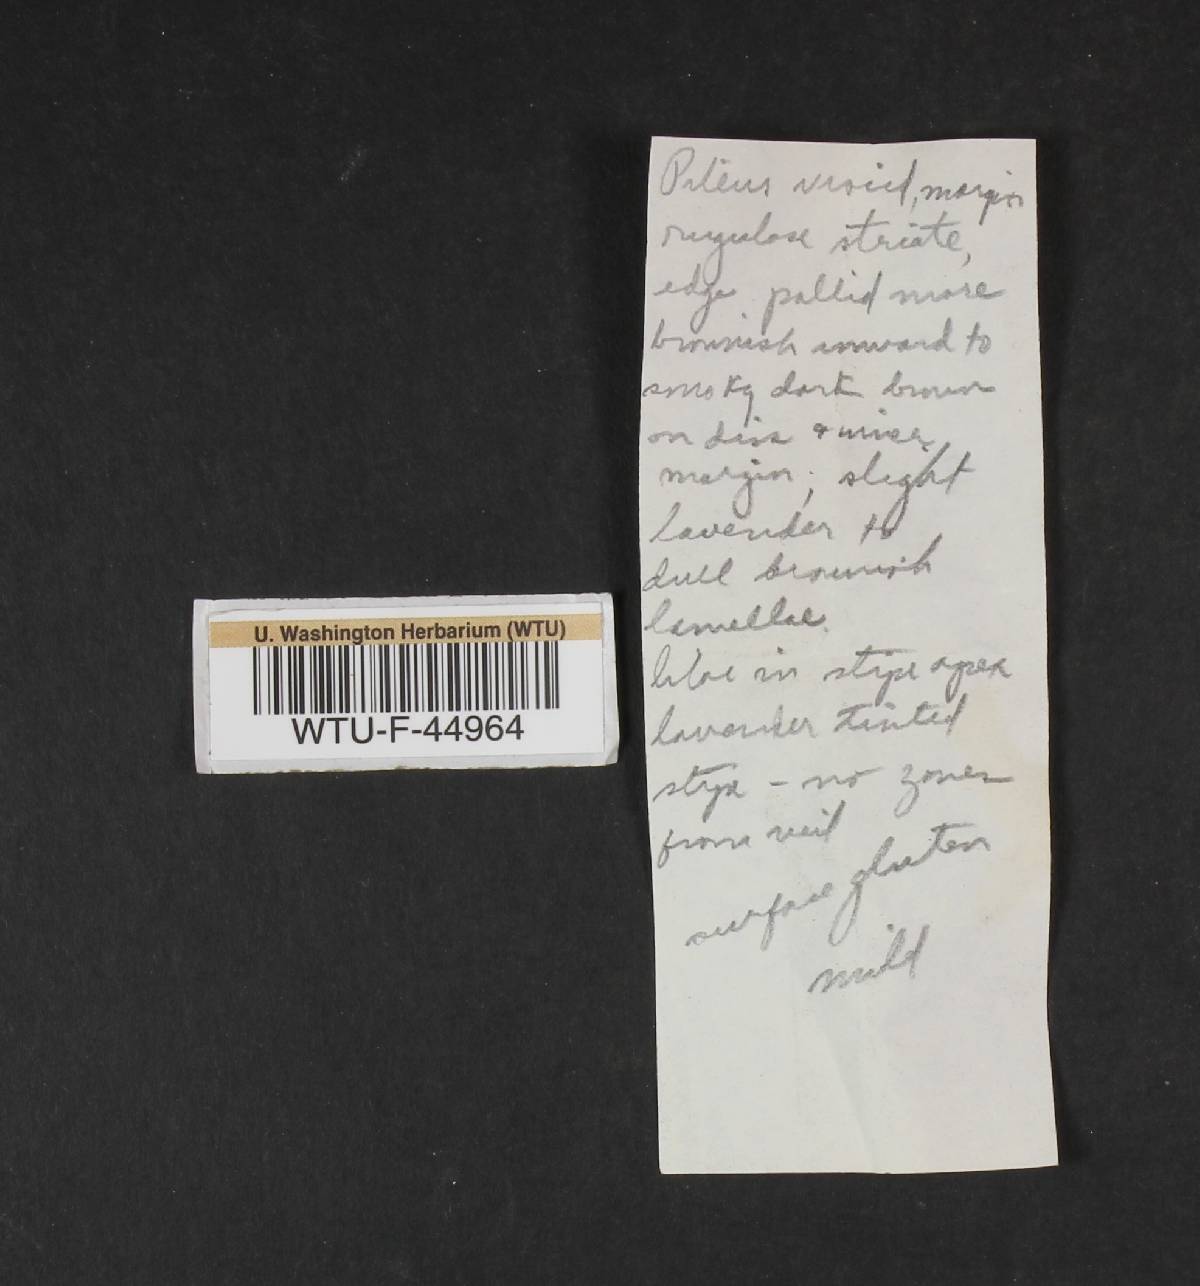 U. Washington Herbarium (WTU)
WTU-F-44964
Pileus viscid, margin
rugulose striate,
edge pallid more
brownish inward to
smoky dark brown
on disc & inner
margin; slight
lavender to
dull brownish
lamellae.
lilac in stipe apex
lavender tinted
stipe - no zones
from veil
surface gluten
mild